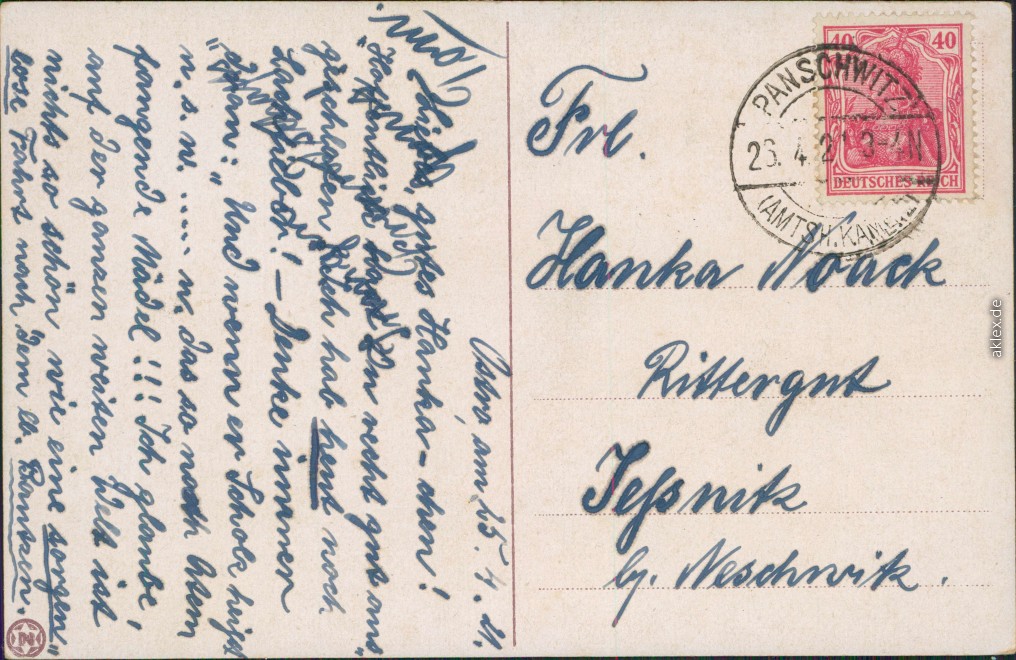 Ostro, am 25. 4. 21.
Liebes, gutes Hanka-chen!
"Hoffentlich hast Du recht gut aus"
geschlafen! Ich hab heut noch
! - Denke immer
"dran:" Und wenn er Schock heißt
u. s. w. ..... u. das so nach Atem
fangende Mädel!!! Ich glaube,
auf der ganzen weiten Welt ist
nichts so schön wie eine "sorgen"
lose Fahrt nach dem ll. Bautzen.
Frl.
Hanka Noack
Rittergut
Jeßnitz
b/. Neschwitz.
40 40
DEUTSCHES REICH
PANSCHWITZ
26. 4. 21 3-4N
(AMTSH. KAMENZ)
aklex.de